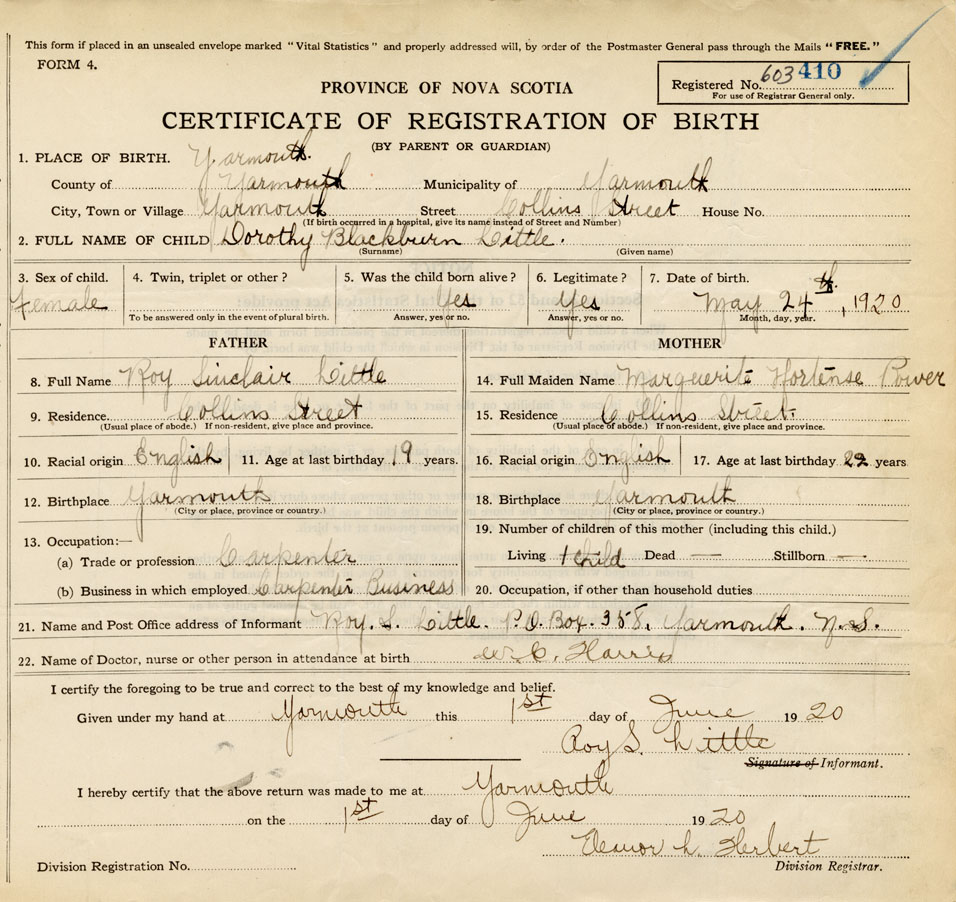 This form if placed in an unsealed envelope marked "Vital Statistics" and properly addressed will, by order of the Postmaster General pass through the Mails "FREE."
FORM 4.
Registered No. 603 410
For use of Registrar General only.
PROVINCE OF NOVA SCOTIA
CERTIFICATE OF REGISTRATION OF BIRTH
(BY PARENT OR GUARDIAN)
1. PLACE OF BIRTH. Yarmouth.
County of Yarmouth Municipality of Yarmouth
City, Town or Village Yarmouth Street Collins Street House No.
(If birth occurred in a hospital, give its name instead of Street and Number)
2. FULL NAME OF CHILD Dorothy Blackburn Little.
(Surname) (Given name)
3. Sex of child. 4. Twin, triplet or other? 5. Was the child born alive? 6. Legitimate? 7. Date of birth.
Female Yes Yes May 24th, 1920
To be answered only in the event of plural birth. Answer, yes or no. Answer, yes or no. Month, day, year.
FATHER MOTHER
8. Full Name Roy Sinclair Little 14. Full Maiden Name Marguerite Hortense Power
9. Residence. Collins Street 15. Residence Collins Street.
(Usual place of abode.) If non-resident, give place and province. (Usual place of abode.) If non-resident, give place and province.
10. Racial origin English 11. Age at last birthday 19 years. 16. Racial origin English 17. Age at last birthday 22 years
12. Birthplace Yarmouth 18. Birthplace Yarmouth
(City or place, province or country.) (City or place, province or country.)
13. Occupation:— 19. Number of children of this mother (including this child.)
(a) Trade or profession Carpenter Living 1 Child Dead — Stillborn —
(b) Business in which employed Carpenter Business 20. Occupation, if other than household duties
21. Name and Post Office address of Informant Roy. S. Little. P.O. Box. 358, Yarmouth. N.S.
22. Name of Doctor, nurse or other person in attendance at birth C. Harris
I certify the foregoing to be true and correct to the best of my knowledge and belief.
Given under my hand at Yarmouth this 1st day of June 1920
Roy S. Little
Signature of Informant.
I hereby certify that the above return was made to me at Yarmouth
on the 1st day of June 1920
Eleanor L. Herbert
Division Registration No. Division Registrar.